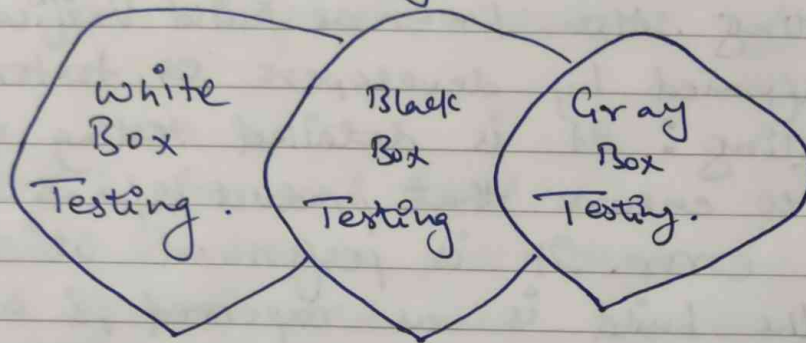 White
Box
Testing.
Black
Box
Testing
Gray
Box
Testing.